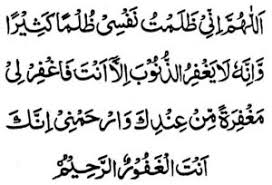 اَللّٰهُمَّ اِنِّیْ ظَلَمْتُ نَفْسِیْ ظُلْمًا كَثِیْرًا
وَّاِنَّهٗ لَا یَغْفِرُ الذُّنُوْبَ اِلَّا اَنْتَ فَاغْفِرْ لِیْ
مَغْفِرَةً مِّنْ عِنْدِكَ وَارْحَمْنِیْ اِنَّكَ
اَنْتَ الْغَفُوْرُ الرَّحِیْمُ